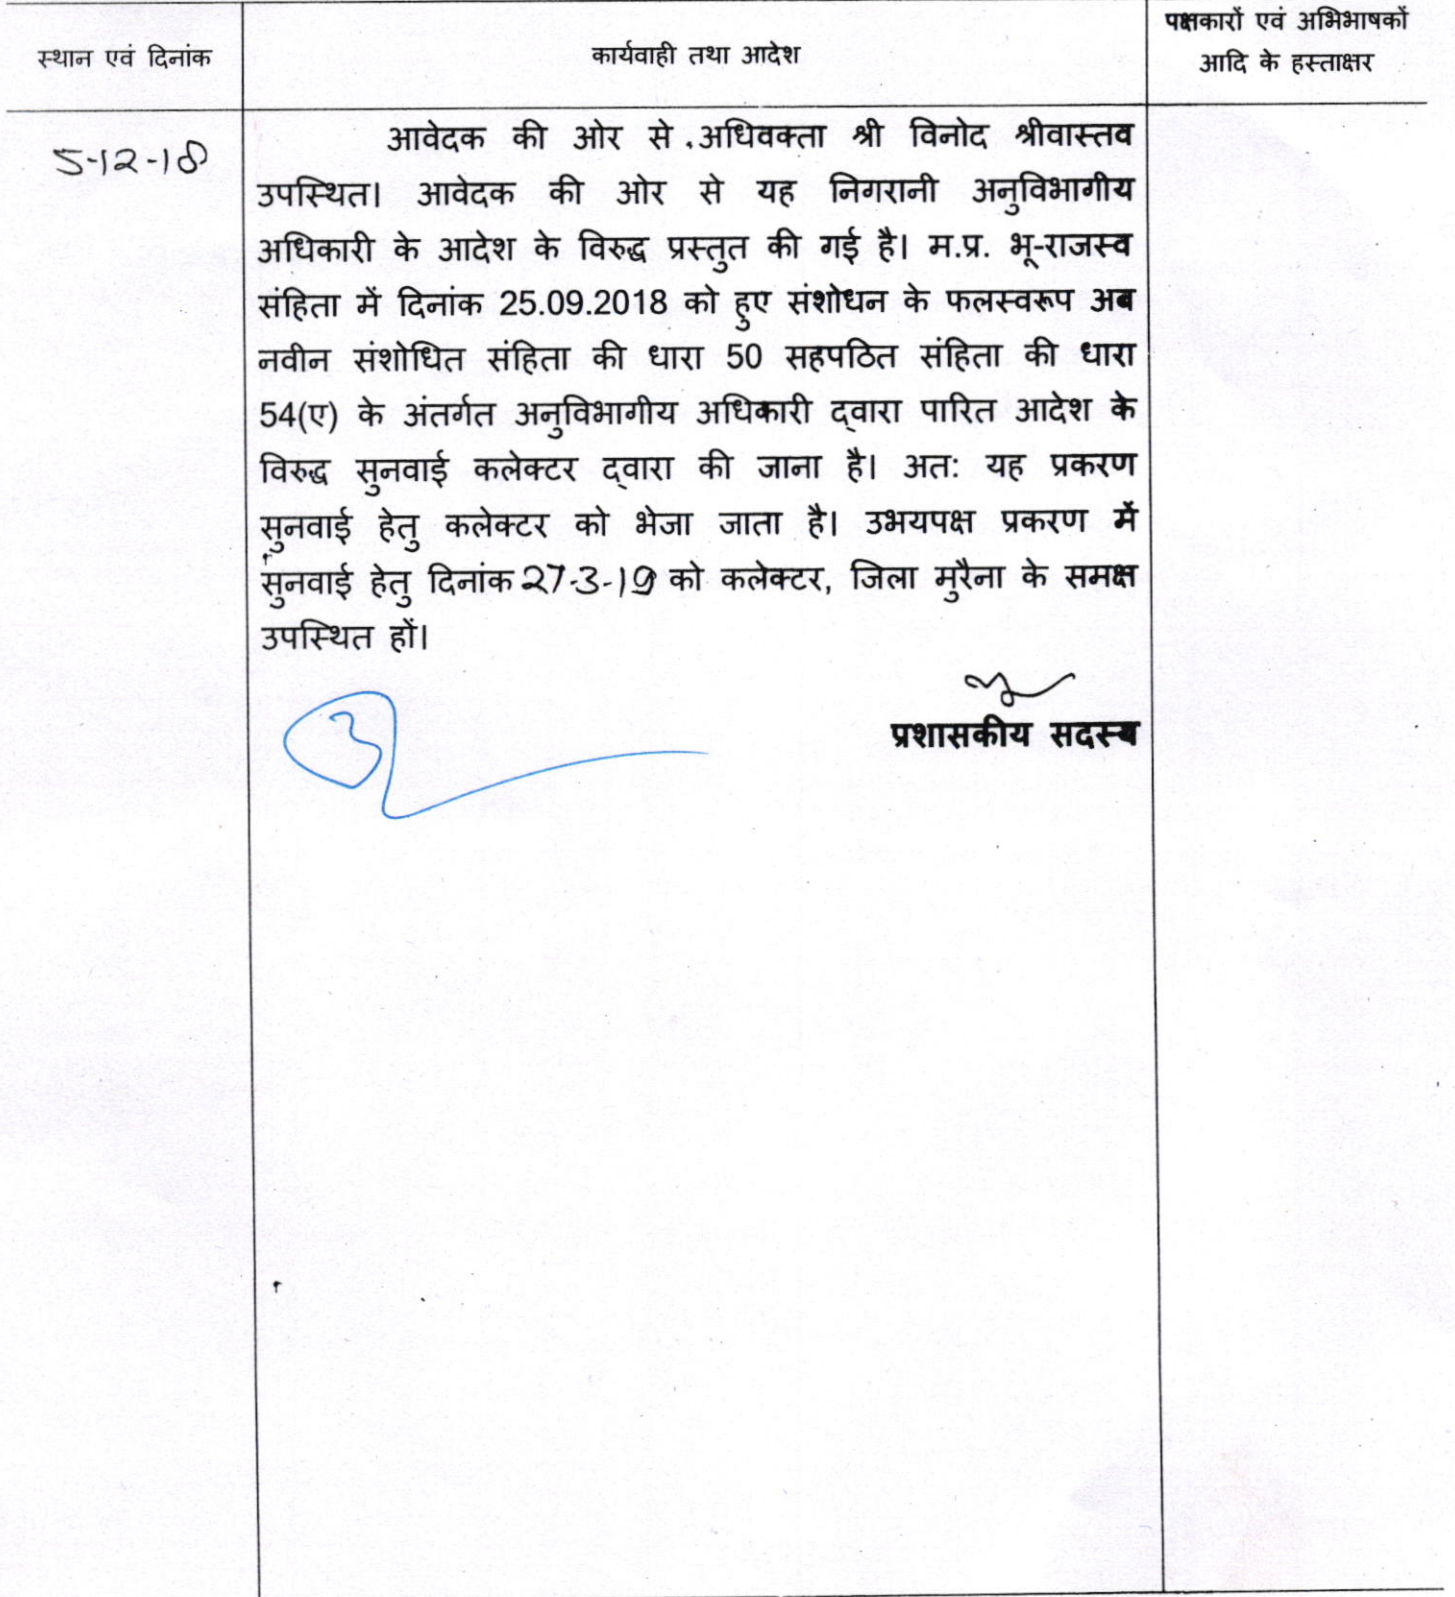 स्थान एवं दिनांक
कार्यवाही तथा आदेश
पक्षकारों एवं अभिभाषकों
आदि के हस्ताक्षर
5-12-18
आवेदक की ओर से अधिवक्ता श्री विनोद श्रीवास्तव
उपस्थित। आवेदक की ओर से यह निगरानी अनुविभागीय
अधिकारी के आदेश के विरुद्ध प्रस्तुत की गई है। म.प्र. भू-राजस्व
संहिता में दिनांक 25.09.2018 को हुए संशोधन के फलस्वरूप अब
नवीन संशोधित संहिता की धारा 50 सहपठित संहिता की धारा
54(ए) के अंतर्गत अनुविभागीय अधिकारी द्वारा पारित आदेश के
विरुद्ध सुनवाई कलेक्टर द्वारा की जाना है। अत: यह प्रकरण
सुनवाई हेतु कलेक्टर को भेजा जाता है। उभयपक्ष प्रकरण में
सुनवाई हेतु दिनांक 27-3-19 को कलेक्टर, जिला मुरैना के समक्ष
उपस्थित हों।
प्रशासकीय सदस्य